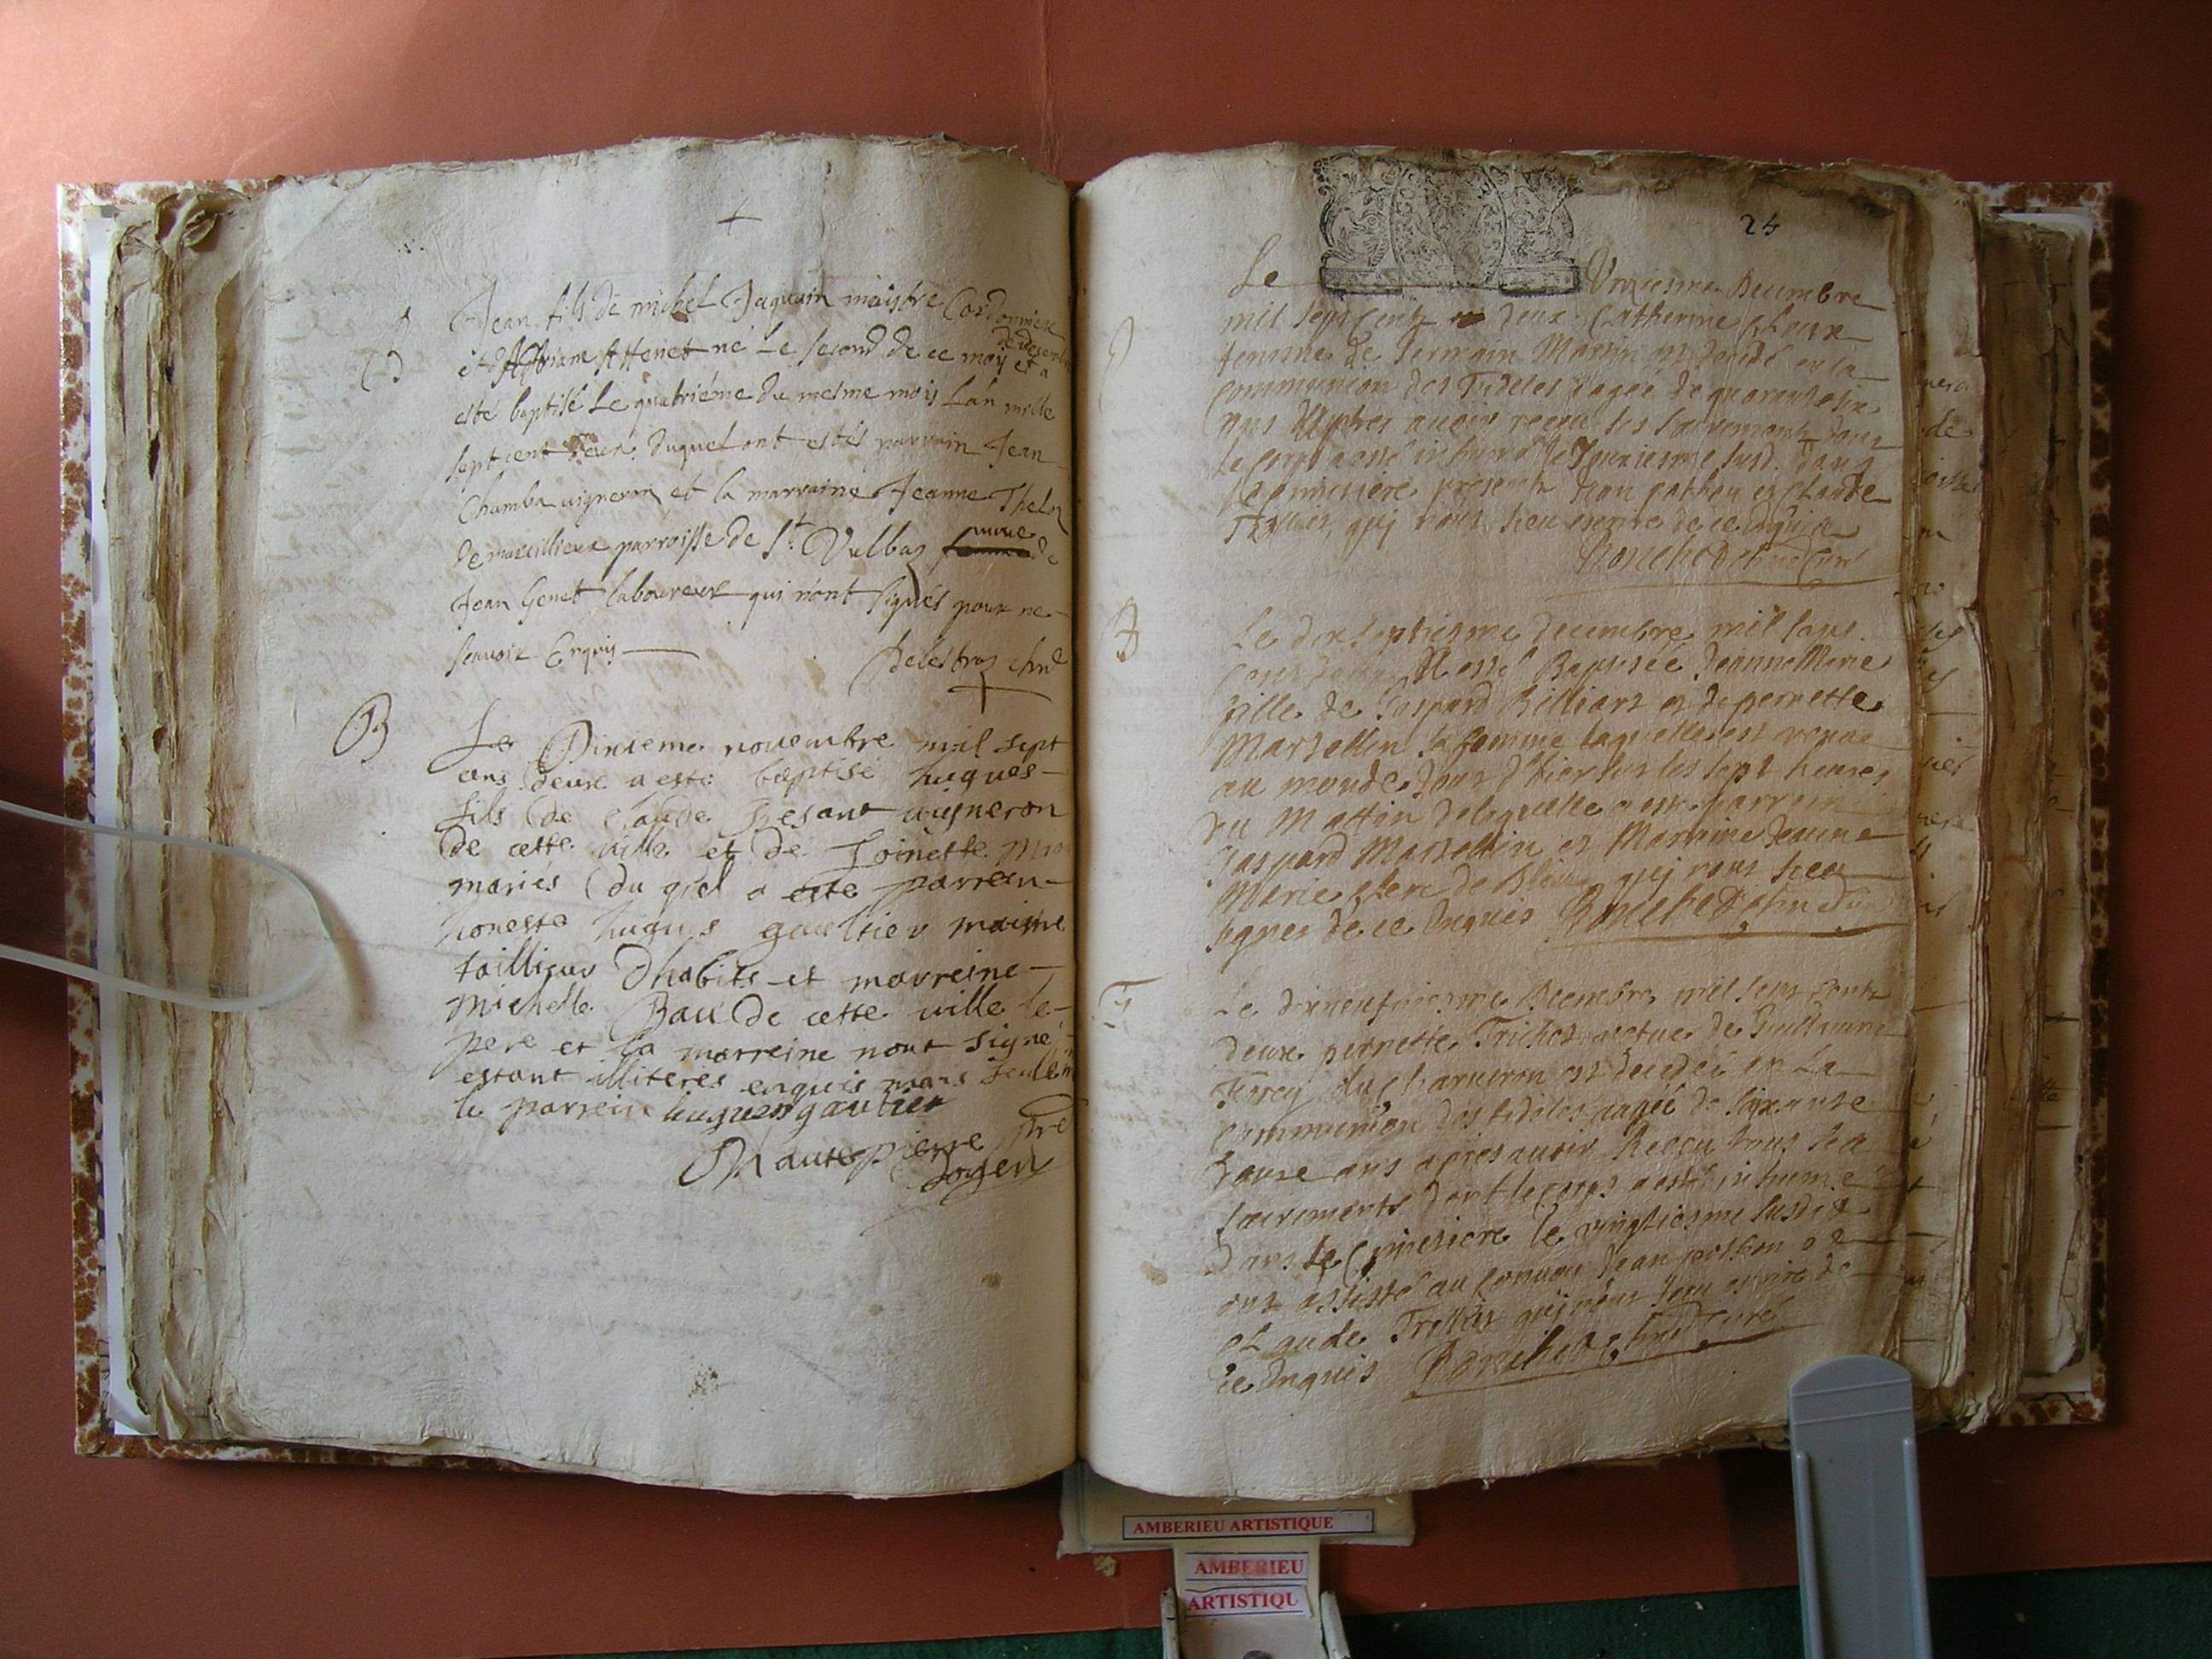 Jean fils de michel Jaquain maistre Cordonnier
et Adriane Attenet né Le second de ce moys
de decembre
et a
esté baptisé Le quatriéme du mesme mois Lan mille
sept cent deux duquel ont estés parrain Jean
Chamba uigneron et la marraine Jeanne
de marcillieux parroisse de St. Vulbas
uefue
de
Jean Genet laboureur qui n'ont signés pour ne
scauoir Enquis
B
Le Dixieme nouembre mil sept
cens deux a este baptisé hugues
fils de Claude Besant uigneron
de cette uille et de Toinette
maries du quel a este parrein
honeste hugues gaultier maistre
taillieur Dhabits et marreine
Michelle Bau de cette uille le
pere et la marreine nont signé
estant illiteres enquis mais
le parrein hugues gautier
Mautepierre ptre
Doyen
24
Le Unziesme Decembre
mil sept Centz deux Catherine
femme de Germain Martin est decedé en la
Communion des Fideles eagée de quarante six
ans Apres auoir receu les sacrements dont
Le Corps a esté inhumé le susd. dans
le Cimetiere presents Jean pothon et Claude
Trollier, qui nont sceu escrire de ce enquis
B
Le dix septiesme decembre mil sept
cent deux A esté Baptisée Jeanne Marie
fille de Gaspard Billiard et de pernette
Marzellin sa femme laquelle est venue
au monde Jour d'hier sur les sept heures
du Mattin de laquelle a esté parrein
Gaspard Marzellin et Marreine Jeanne
Marie qui nont sceu
signer de ce Enquis
Le dixneufuiesme Decembre mil sept Centz
deux pernette Trichot vefue de Guillaume
Ferrey du Charveron est decedée en La
Communion des fideles eagée de soixante
douze ans apres auoir Receu tous les
sacrements dont le corps a esté inhumé
Dans le Cimetiere le vingtiesme susdit
ont assisté au Conuoy Jean pothon et
Claude Trollier qui nont sceu escrire de
ce Enquis
AMBERIEU ARTISTIQUE
AMBERIEU
ARTISTIQU